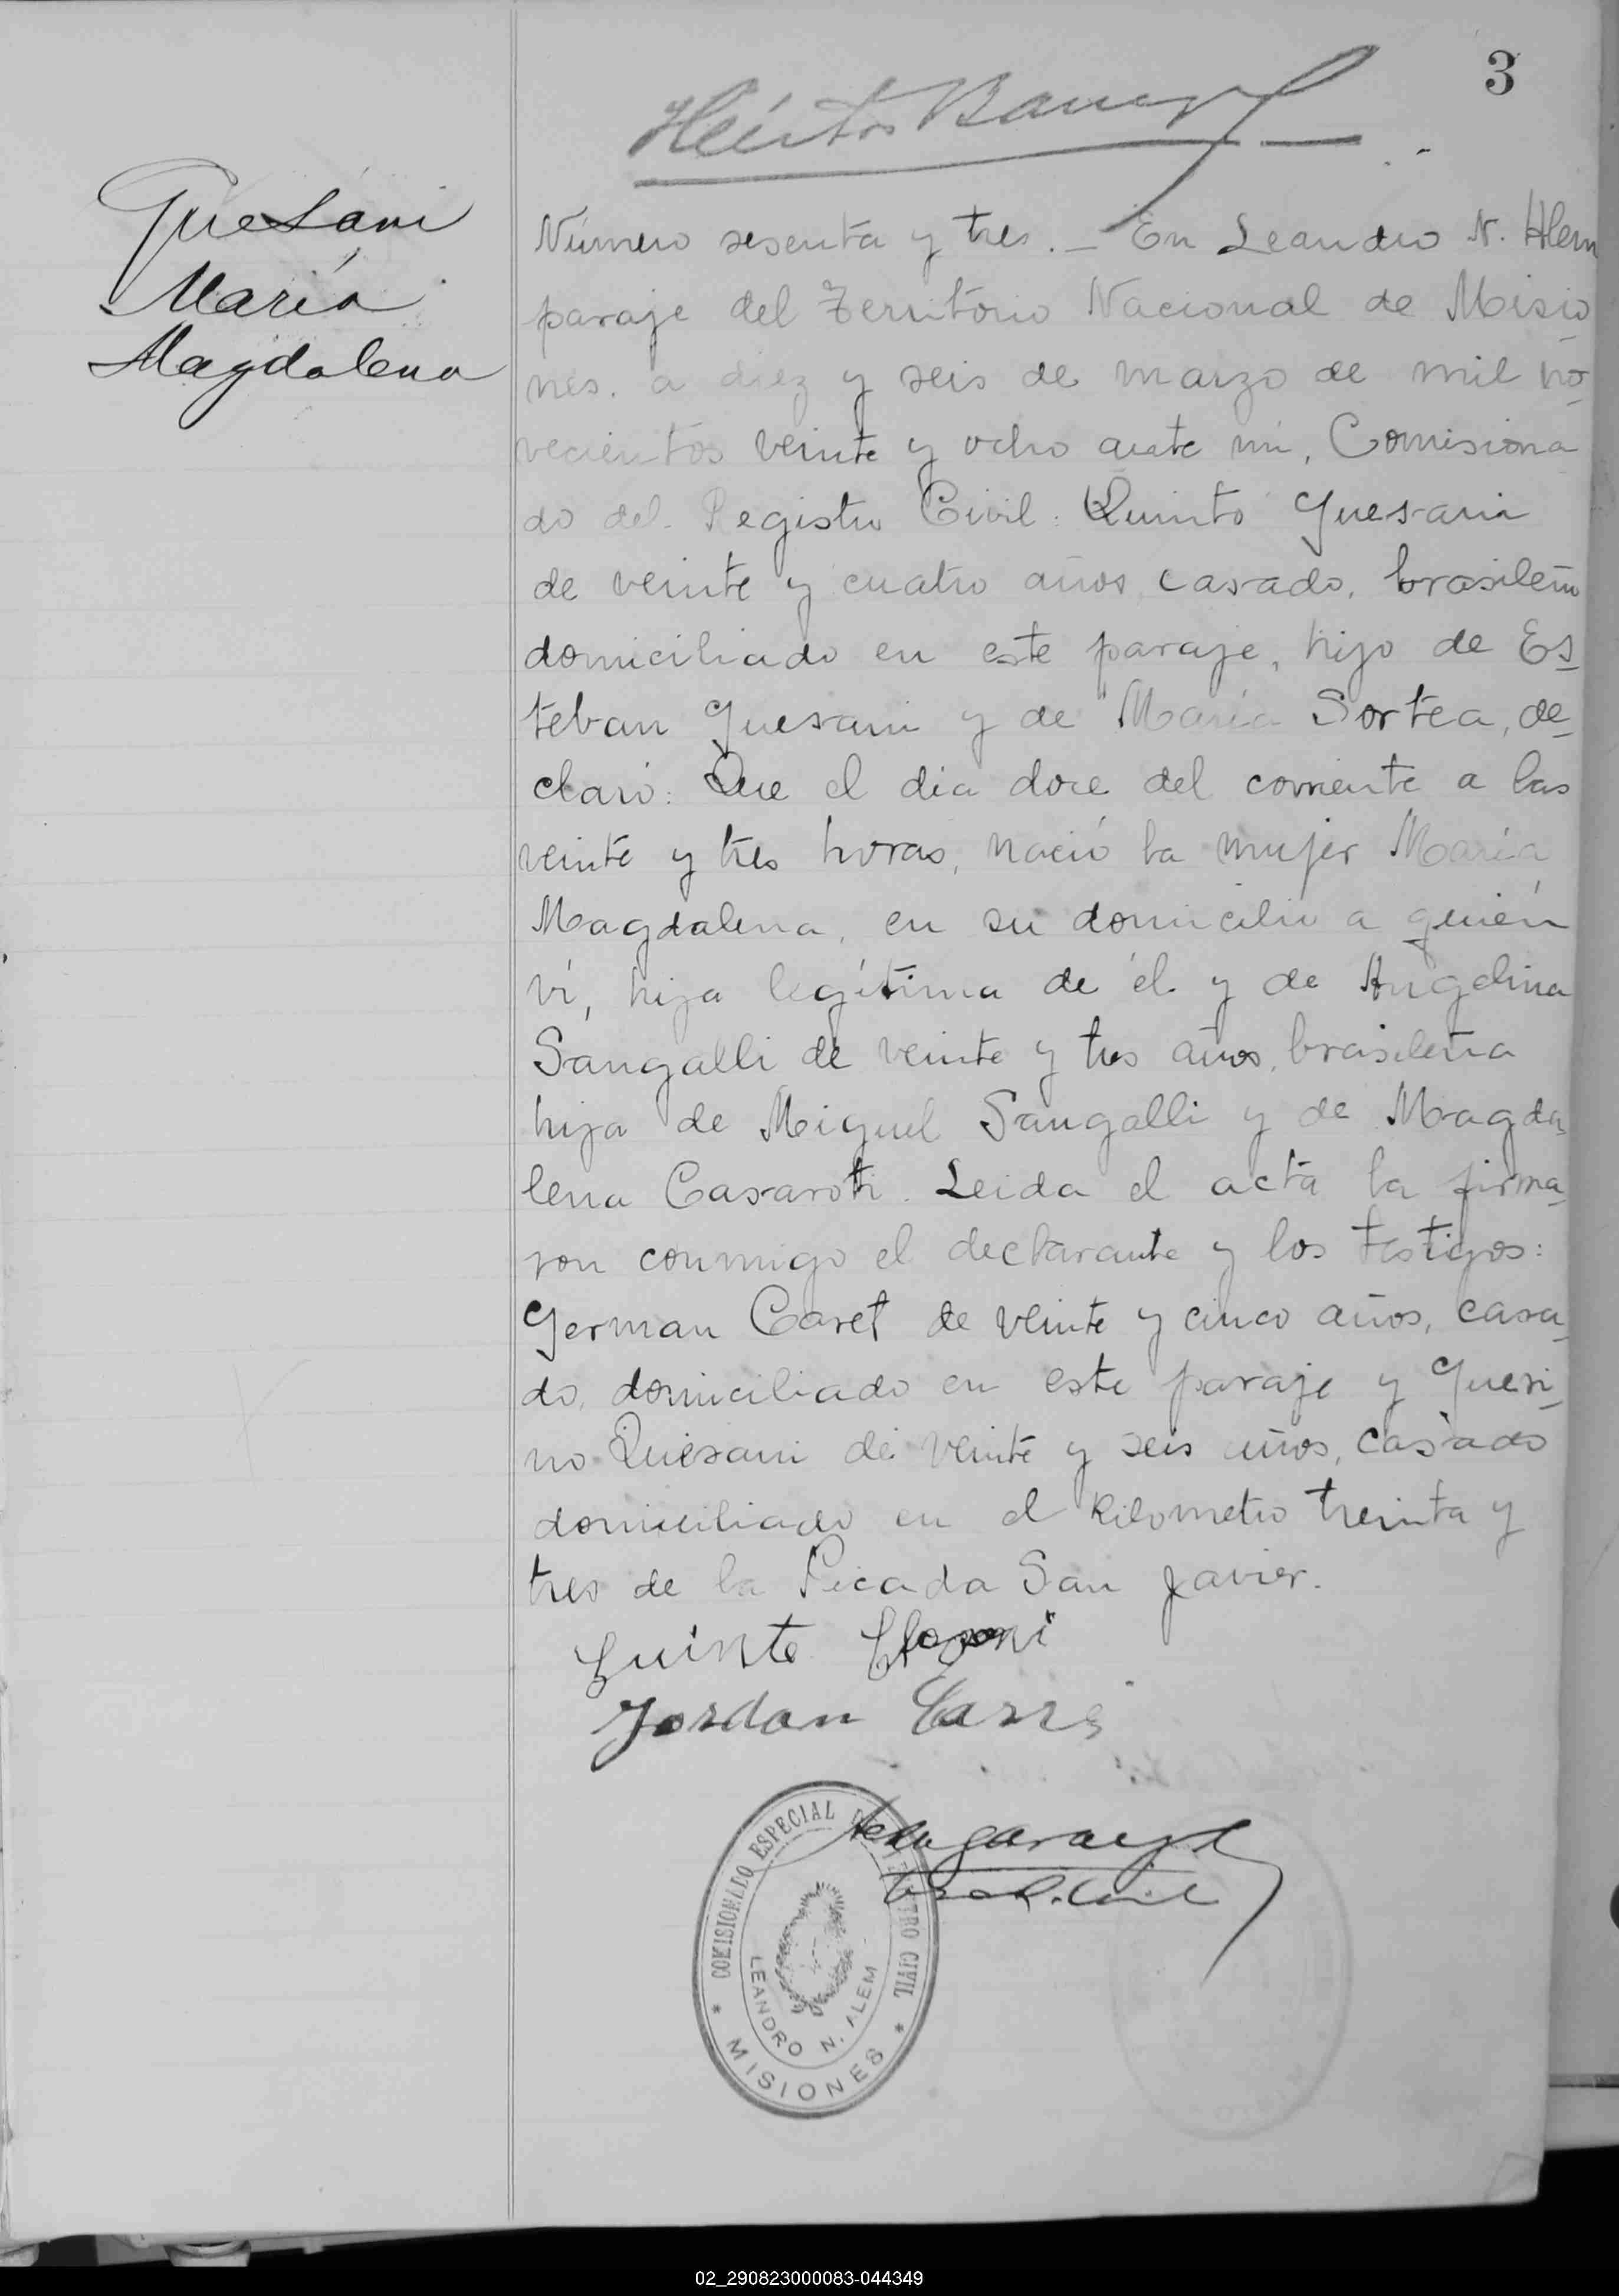 3
Quesani
María
Magdalena
Número sesenta y tres. — En Leandro N. Alem
paraje del Territorio Nacional de Misio
nes. a diez y seis de marzo de mil no-
vecientos veinte y ocho ante mi, Comisiona
do del Registro Civil: Quinto Quesani
de veinte y cuatro años, casado, brasileño
domiciliado en este paraje, hijo de Es-
teban Quesani y de María Sortea, de-
claró: Que el dia doce del corriente a las
veinte y tres horas, nació la mujer María
Magdalena, en su domicilio a quién
ví, hija legítima de él y de Angelina
Sangalli de veinte y tres años, brasileña
hija de Miguel Sangalli y de Magda-
lena Casaroti. Leida el acta la firma-
ron conmigo el declarante y los testigos:
German Caret de veinte y cinco años, casa-
do, domiciliado en este paraje y Queri-
no Quesani de veinte y seis años, casado
domiciliado en el kilometro treinta y
tres de la Picada San Javier.
Quinto
Jordan
COMISIONADO ESPECIAL REGISTRO CIVIL
LEANDRO N. ALEM
* MISIONES *
02_290823000083-044349